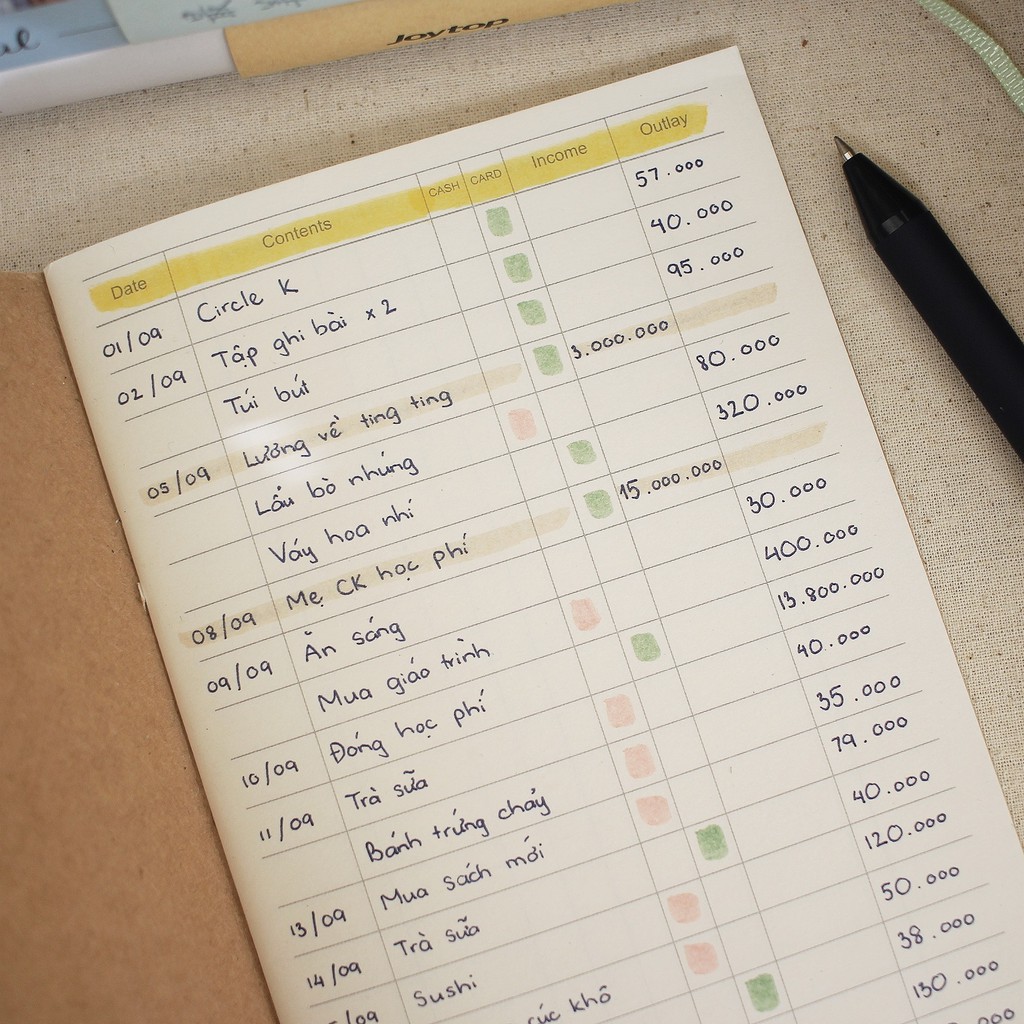 Joytop
Date Contents CASH CARD Income Outlay
01/09 Circle K 57.000
02/09 Tập ghi bài x 2 40.000
Túi bút 95.000
05/09 Lương về ting ting 3.000.000
Lẩu bò nhúng 80.000
Váy hoa nhí 320.000
08/09 Mẹ CK học phí 15.000.000
09/09 Ăn sáng 30.000
Mua giáo trình 400.000
10/09 Đóng học phí 13.800.000
11/09 Trà sữa 40.000
Bánh trứng chảy 35.000
13/09 Mua sách mới 79.000
14/09 Trà sữa 40.000
Sushi 120.000
cúc khô 50.000
38.000
130.000